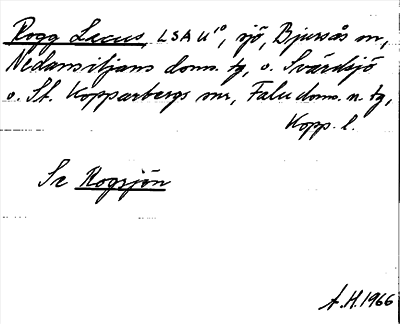 Rogg Lacus, LSA U¹⁰, sjö, Bjursås sn,
Nedansiljans doms. tg, o. Svärdsjö
o. St. Kopparbergs snr, Falu doms. n. tg,
Kopp. l.
Se Rogsjön
A.H. 1966